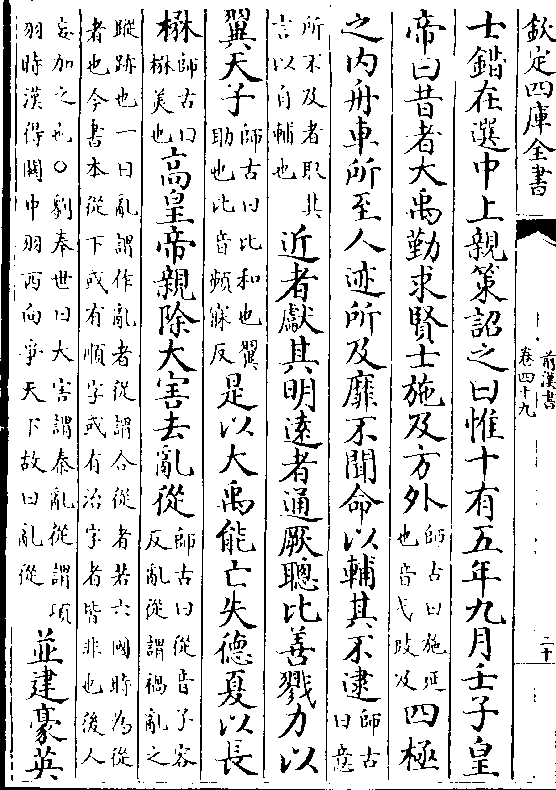 欽定四庫全書
前漢書
卷四十九
二十
士錯在選中上親策詔之曰惟十有五年九月壬子皇
帝曰昔者大禹勤求賢士施及方外師古曰施延也音弋豉反四極
之内舟車所至人迹所及靡不聞命以輔其不逮師古曰意
所不及者取其言以自輔也近者獻其明遠者通厥聰比善戮力以
翼天子師古曰比和也翼助也比音頻寐反是以大禹能亡失德夏以長
楙師古曰楙美也高皇帝親除大害去亂從師古曰從音子容反亂從謂禍亂之
蹤跡也一曰亂謂作亂者從謂合從者若六國時為從者也今書本從下或有順字或有治字者皆非也後人
妄加之也○劉奉世曰大害謂秦亂從謂項羽時漢得關中羽西向爭天下故曰亂從並建豪英